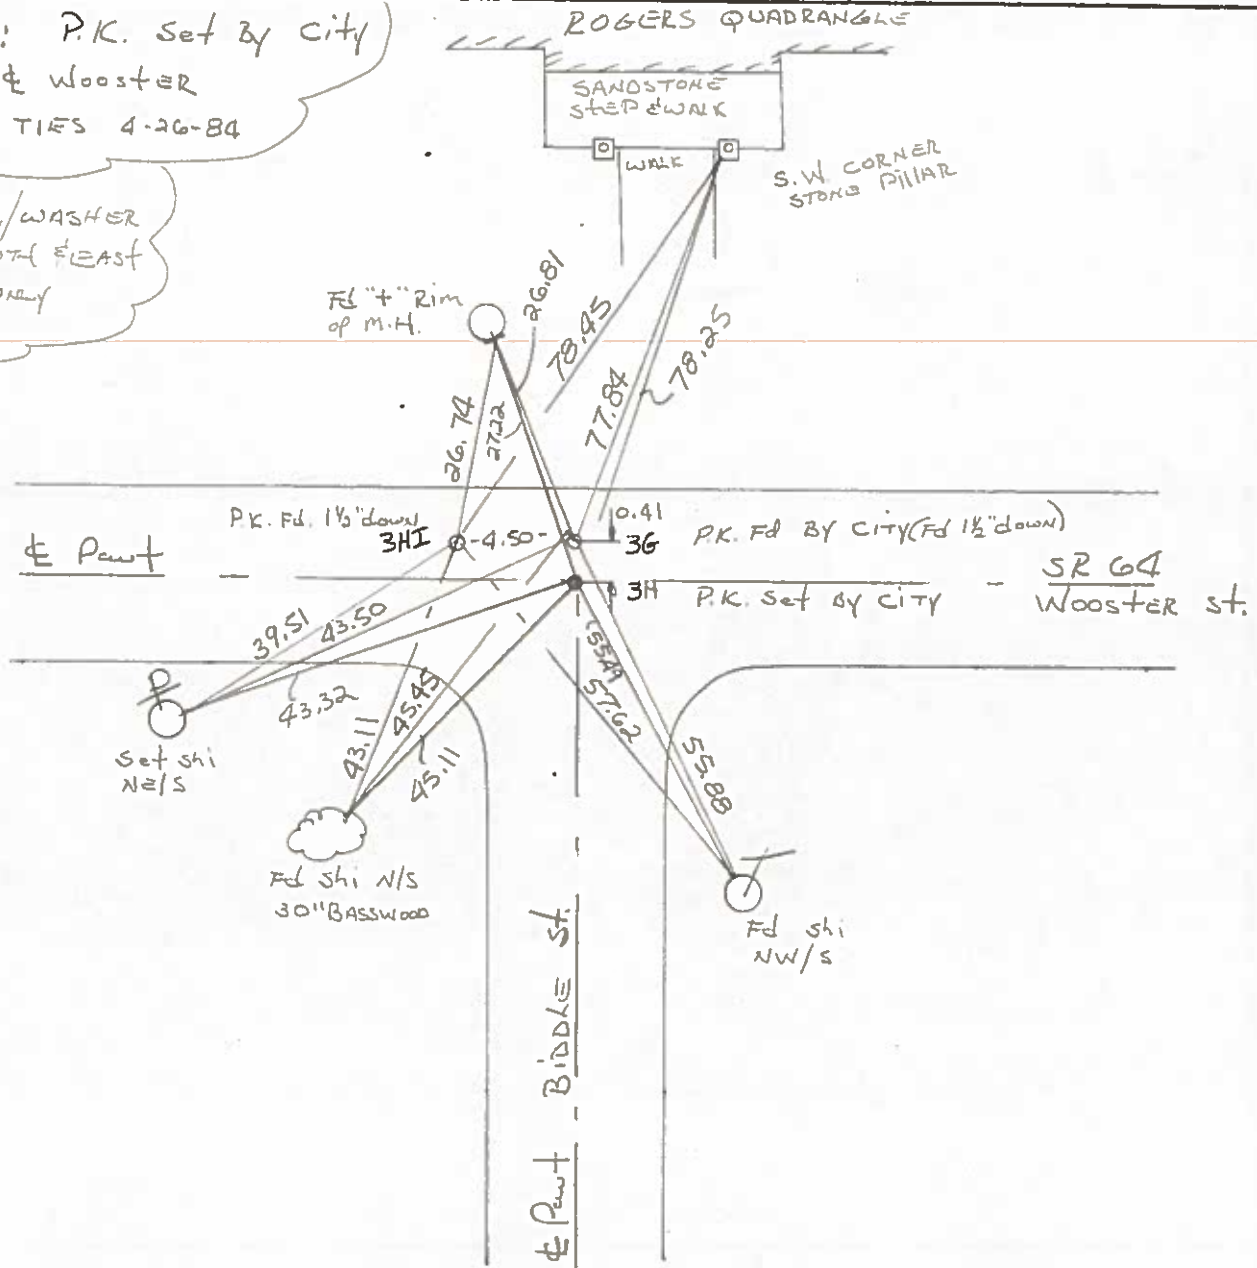 : P.K. Set By City
℄ Wooster
TIES 4-26-84
/WASHER
& EAST
ONLY
ROGERS QUADRANGLE
SANDSTONE
STEP & WALK
WALK
S.W. CORNER
STONE PILLAR
Fd "+" Rim
of M.H.
26.81
78.45
78.25
77.84
26.74
27.22
P.K. Fd. 1½" down
3HI
-4.50-
0.41
3G
P.K. Fd By City (Fd 1½" down)
℄ Pavt
3H
P.K. Set By City
SR 64
Wooster St.
39.51
43.50
43.32
43.11
45.45
45.11
55.49
57.62
55.88
P
Set shi
NE/S
Fd shi N/S
30" BASSWOOD
Fd shi
NW/S
℄ Pavt - BIDDLE St.